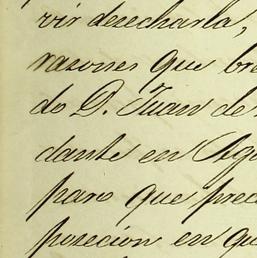 vir desecharla,
razones que bre
do D. Juan de
dante en Ago
paro que prec
posecion en qu